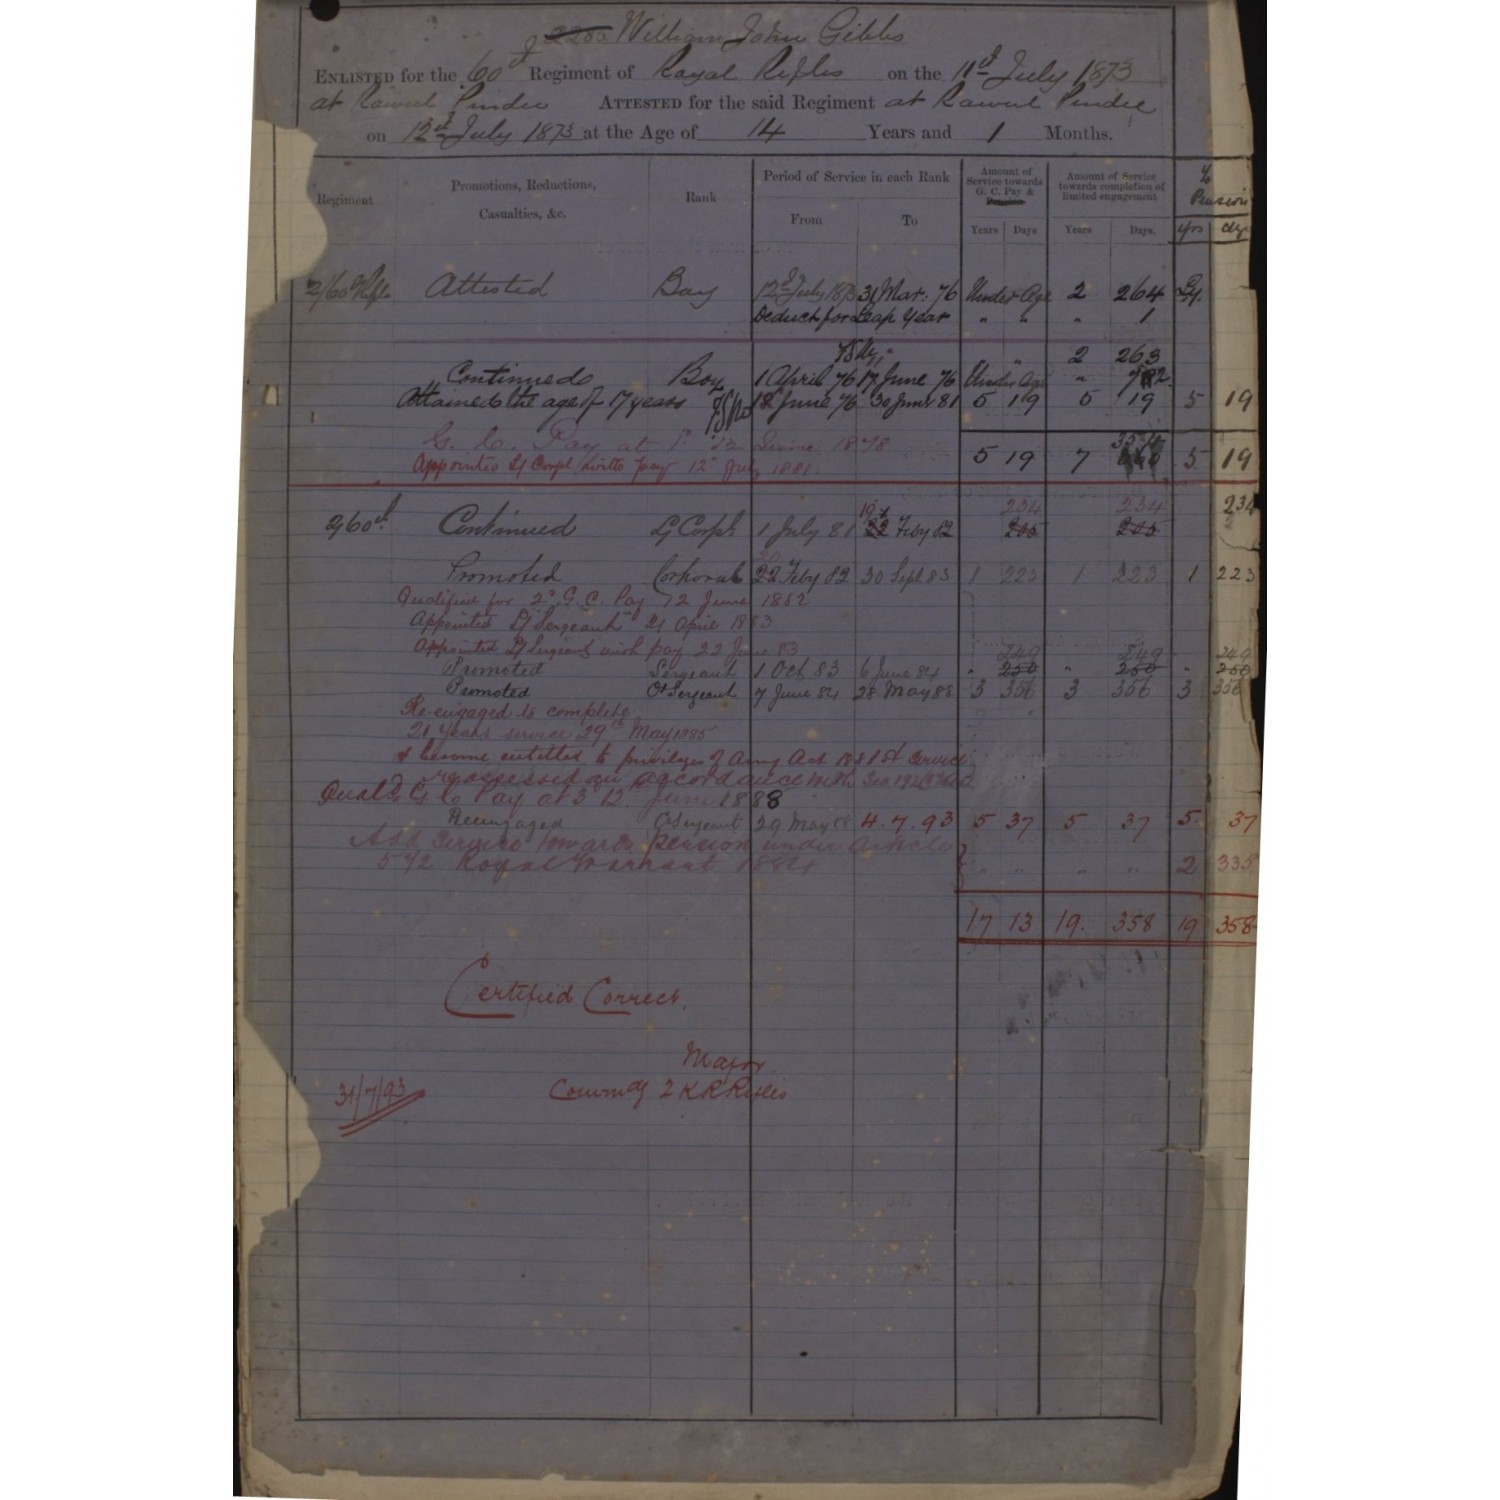 2203 William John Gibbs
ENLISTED for the 60th Regiment of Royal Rifles on the 11th July 1873
at Rawul Pindee ATTESTED for the said Regiment at Rawul Pindee
on 12th July 1873 at the Age of 14 Years and 1 Months.
Regiment Promotions, Reductions, Casualties, &c. Rank Period of Service in each Rank From To Amount of Service towards G. C. Pay & Pension Years Days Amount of Service towards completion of limited engagement Years Days. Pension yrs dys
2/60 Rifles Attested Boy 12th July 1873 31 Mar: 76 Under Age 2 264
Deduct for Leap Year " " " 1
" 2 263
Continued Boy 1 April 76 17 June 76 Under Age "
Attained the age of 17 years 12 June 76 30 June 81 5 19 5 19 5 19
G. C. Pay at 1d 12 June 1878
5 19 7 5 19
Appointed L/Corpl with pay 12 July 1881.
234 234 234
2/60th Continued L/Corpl 1 July 81 22 Feby 82 205 205
Promoted Corporal 22 Feby 82 30 Sept 83 1 223 1 223 1 223
Qualified for 2d G. C. Pay 12 June 1882
Appointed L/Sergeant 21 April 1883
Appointed L/Sergeant with pay 22 June 83
249 249 249
Promoted Sergeant 1 Oct 83 6 June 84 " 250 " 250 " 250
Promoted Cr Sergeant 7 June 84 28 May 88 3 356 3 356 3 356
Re-engaged to complete
21 Years service 29th May 1885
& become entitled to privileges of Army Act 1881 & service
reassessed in accordance with Sec
Quald G. C. Pay at 3d 12. June 1888
Reengaged C Sergeant 29 May 88 4. 7. 93 5 37 5 37 5 37
Add Service towards pension under Article
572 Royal Warrant 1884 " " " " 2 335
17 13 19. 358 19 358
Certified Correct.
Major
31/7/93 Commdg 2 K R Rifles